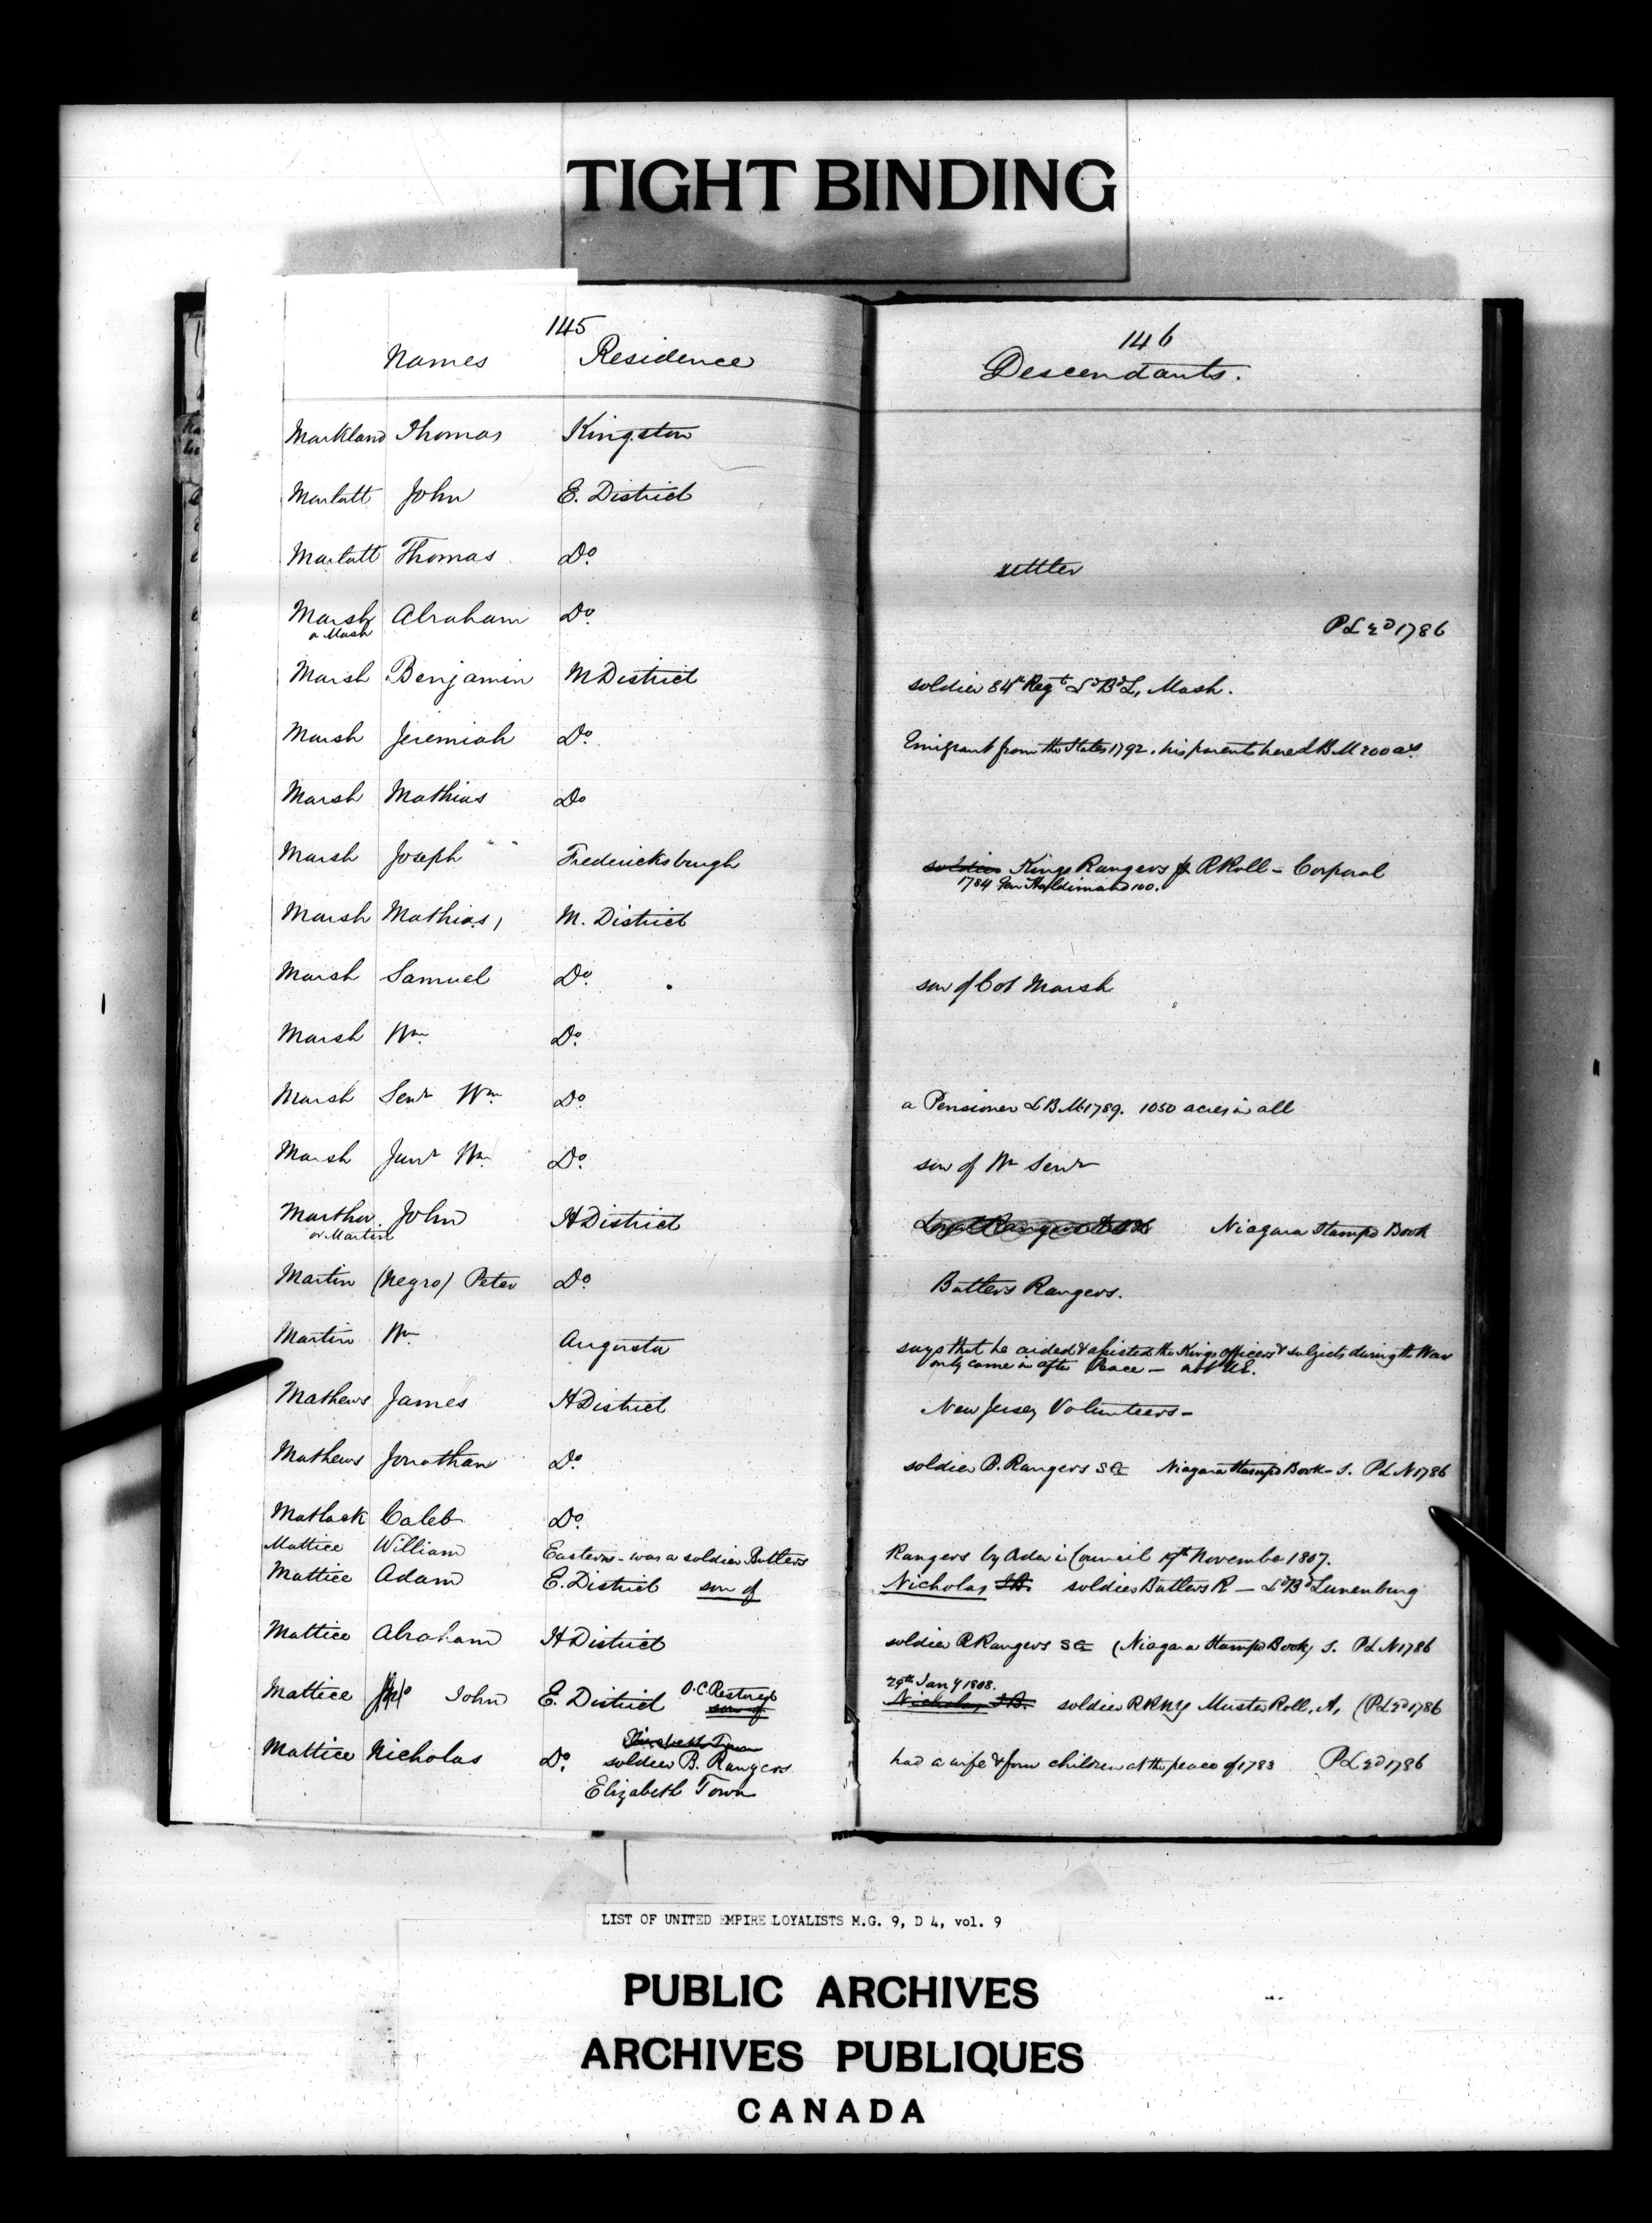 TIGHT BINDING
145
Names Residence
146
Descendants.
Markland Thomas Kingston
Marlatt John E. District
Marlatt Thomas Do. settler
Marsh Abraham Do. P L 2D 1786
or Mash
Marsh Benjamin M District soldier 84t Regt Ld Bd L, Mash.
Marsh Jeremiah Do. Emigrant from the States 1792. his parents here L B M 200 acs
Marsh Mathias Do
Marsh Joseph " " Fredericksburgh soldier Kings Rangers P R Roll - Corporal
1784 Gen Haldimand 100.
Marsh Mathias, M. District
Marsh Samuel Do. son of Col Marsh
Marsh Wm Do.
Marsh Senr Wm Do. a Pensioner L B M 1789. 1050 acres in all
Marsh Junr Wm Do. son of Wm Senr
Marther John H District Niagara Stampd Book
or Martin
Martin (Negro) Peter Do. Butlers Rangers.
Martin Wm Augusta says that he aided & assisted the Kings Officers & subjects during the War
only came in after Peace - not UE.
Mathews James H District New Jersey Volunteers -
Mathews Jonathan Do. soldier B. Rangers S G Niagara Stampd Book - S. P L N 1786
Matlack Caleb Do.
Mattice William Eastern - was a soldier Butlers Rangers by Order in Council 19th November 1807.
Mattice Adam E. District son of Nicholas soldier Butlers R - Ld Bd Lunenburg
Mattice Abraham H District soldier R Rangers S G (Niagara Stampd Book) S. P L N 1786
Mattice John E. District O.C. Restored 29th Jany 1808.
son of Nicholas J.D. soldier R R N Y Muster Roll, A, (P L 2D 1786
Mattice Nicholas Do. soldier B. Rangers had a wife & four children at the peace of 1783 P L 2D 1786
Elizabeth Town
LIST OF UNITED EMPIRE LOYALISTS M.G. 9, D 4, vol. 9
PUBLIC ARCHIVES
ARCHIVES PUBLIQUES
CANADA